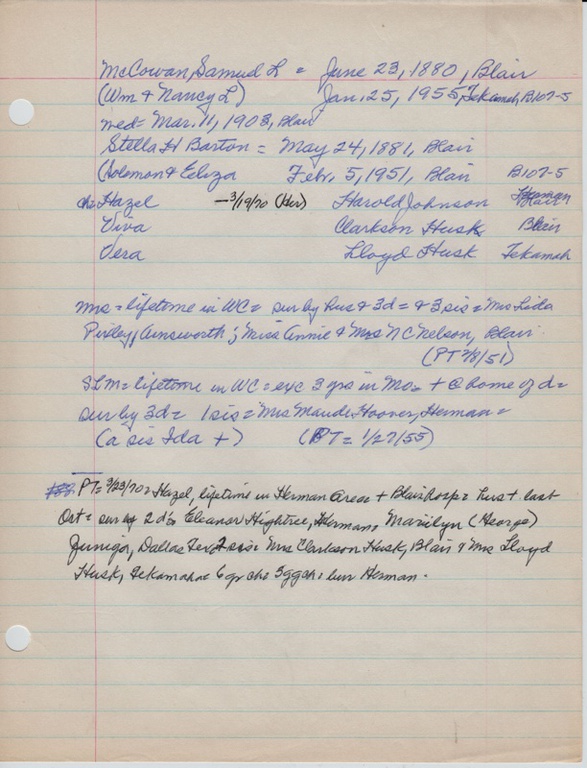 McCowan, Samuel L = June 23, 1880, Blair
(Wm & Nancy L) Jan. 25, 1955, Tekamah, B107-5
med = Mar. 11, 1903, Blair
Stella H Barton = May 24, 1881, Blair
(Solomon & Eliza Febr. 5, 1951, Blair B107-5
ch: Hazel —3/19/70 (Her) Harold Johnson Herman
Viva Clarkson Husk Blair
Vera Lloyd Husk Tekamah
Mrs = lifetime in WC = sur by hus & 3d = & 3 sis = Mrs Lida
Pixley, Ainsworth; Miss Annie & Mrs NC Nelson, Blair.
(PT 2/8/51)
SLM = lifetime in WC = exc 3 yrs in Mo = + @ home of d =
sur by 3d = 1 sis = Mrs Maude Hoover, Herman =
(a sis Ida +) (PT = 1/27/55)
PT = 3/23/70 = Hazel, lifetime in Herman area + Blair hosp = hus + last
Oct = sur by 2 d's Eleanor Hightree, Herman, Marilyn (George)
Juniga, Dallas Tex, 2 sis = Mrs Clarkson Husk, Blair & Mrs Lloyd
Husk, Tekamah = 6 gr ch = 3 ggch = bur Herman.